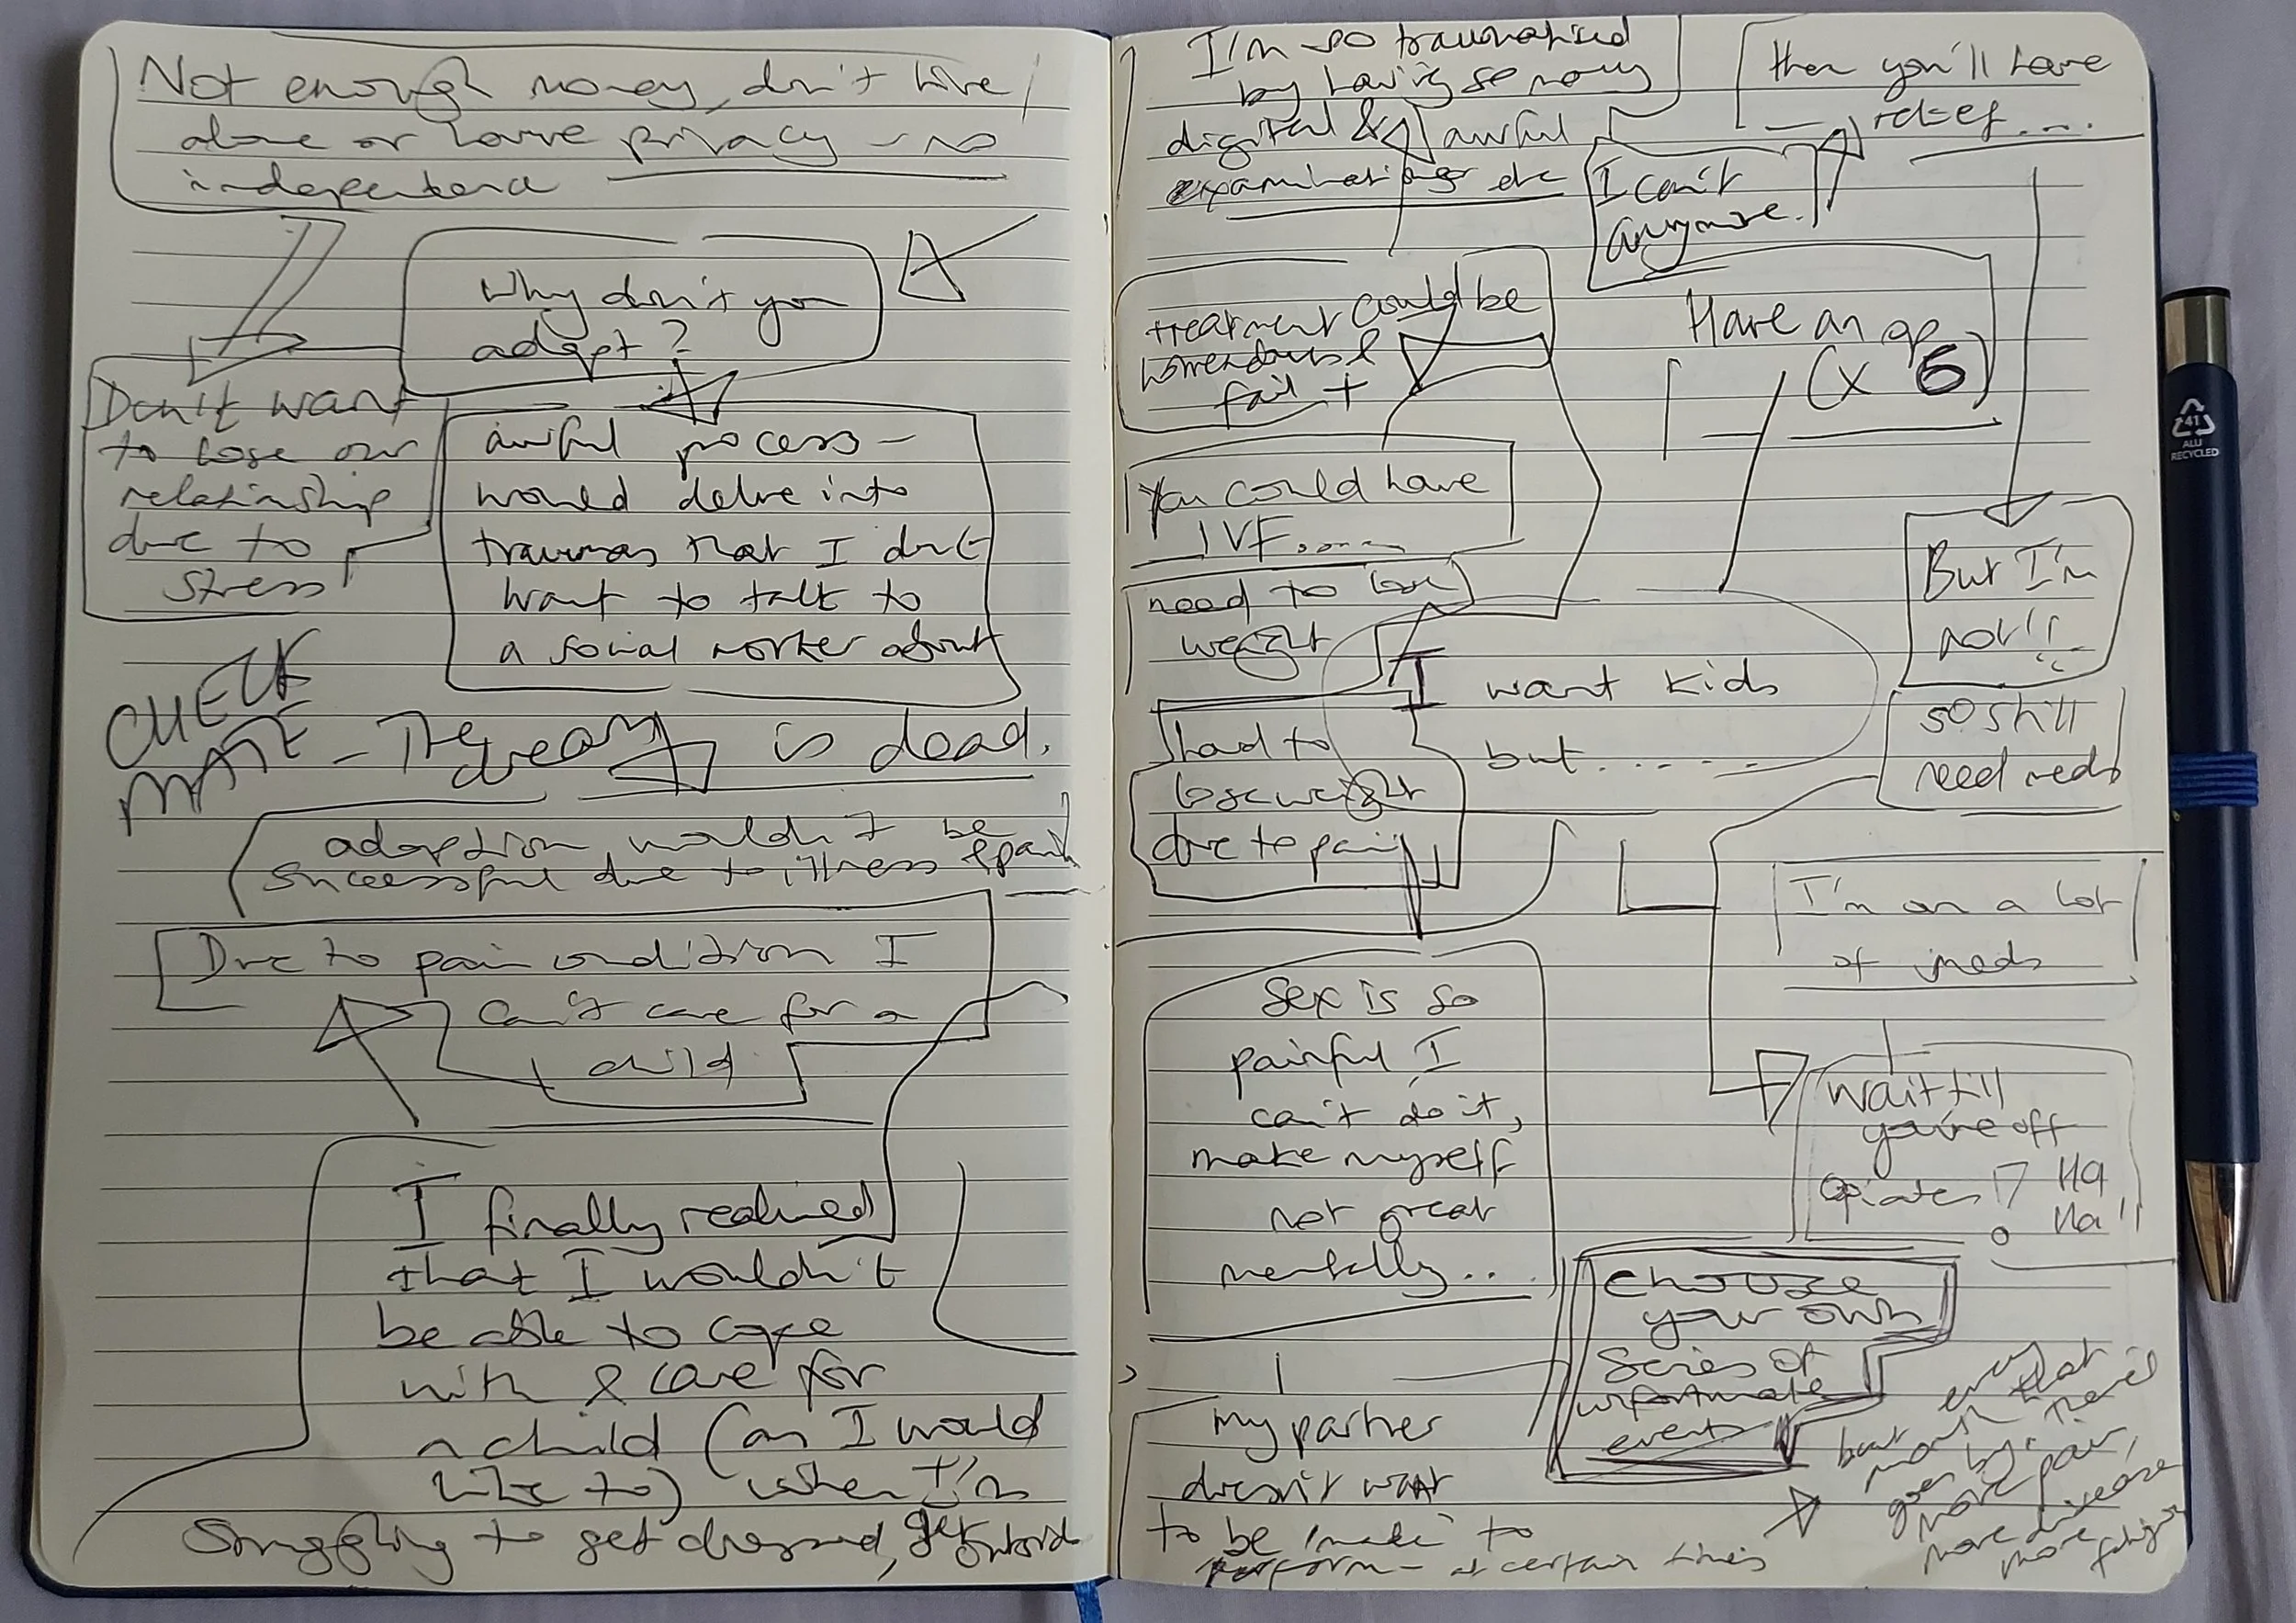 Not enough money, don't live
alone or have privacy - no
independence
Why don't you
adopt?
Don't want
to lose our
relationship
due to
stress
awful process -
would delve into
traumas that I don't
want to talk to
a social worker about
CHECK
MATE - The dream is dead.
adoption wouldn't be
successful due to illness & pain
Due to pain condition I
can't care for a
child
I finally realised
that I wouldn't
be able to cope
with & care for
a child (as I would
like to) when I'm
struggling to get dressed, get outside
I'm so traumatised
by having so many
digital & awful
examinations etc
then you'll have
relief....
I can't
anymore.
treatment could be
horrendous &
fail +
Have an op
(x 6)
You could have
IVF.....
need to lose
weight
But I'm
not!!
I want kids
but......
so still
need meds
had to
lose weight
due to pain
I'm on a lot
of meds
Sex is so
painful I
can't do it,
make myself
not great
mentally...
wait till
you're off
opiates!? Ha
Ha!!
choose
your own
series of
unfortunate
events
but every
month that
goes by, there's
more pain,
more disease
more fatigue
my partner
doesn't want
to be 'made' to
perform - at certain times
41
ALU
RECYCLED